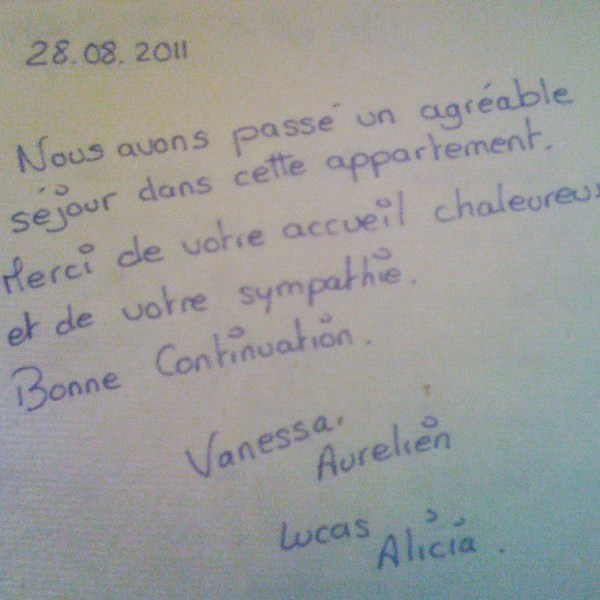 28.08.2011
Nous avons passé un agréable
séjour dans cette appartement.
Merci de votre accueil chaleureux
et de votre sympathie.
Bonne Continuation.
Vanessa.
Aurelien
Lucas
Alicia.